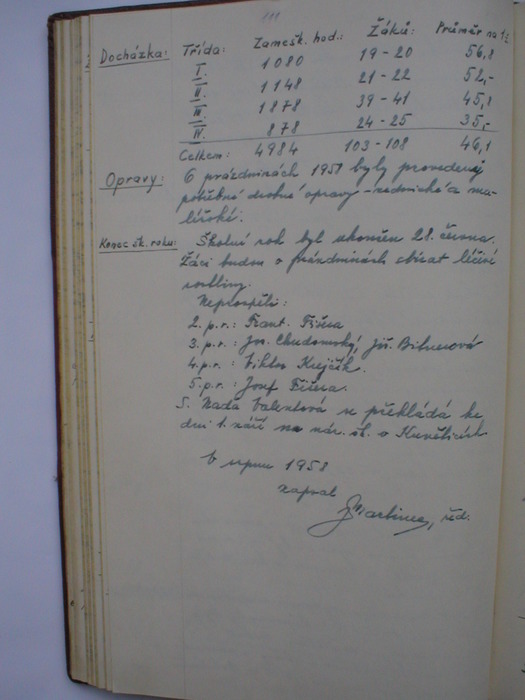 111
Docházka: Třída: Zamešk. hod.: Žáků: Průměr na 1ž.
I. 1080 19 - 20 56,8
II. 1148 21 - 22 52,-
III. 1878 39 - 41 45,8
IV. 878 24 - 25 35,-
Celkem: 4984 103 - 108 46,1
Opravy: O prázdninách 1957 byly provedeny
potřebné drobné opravy - zednické a ma-
lířské.
Konec šk. roku: Školní rok byl ukončen 28. června.
Žáci budou o prázdninách sbírat léčivé
rostliny.
Neprospěli:
2. p.r.: Frant. Fišera
3. p.r.: Jos. Chudomský, Jiř. Bitnerová
4. p.r.: Viktor Krejčík.
5. p.r.: Josef Fišera.
S. Naďa Valentová se překládá ke
dni 1. září na nár. šk. v Kuněticích
V srpnu 1958
zapsal
Martinec, řed.